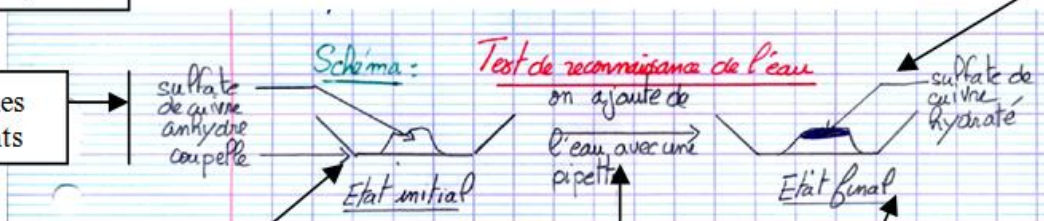 Schéma :
Test de reconnaissance de l'eau
es
nts
sulfate
de cuivre
anhydre
coupelle
Etat initial
on ajoute de
l'eau avec une
pipette
sulfate de
cuivre
hydraté
Etat final